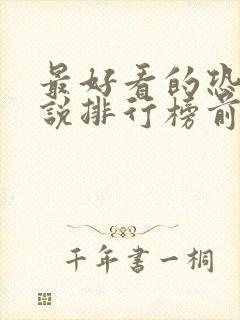 最好看的恐
說排行榜前
千年書一桐